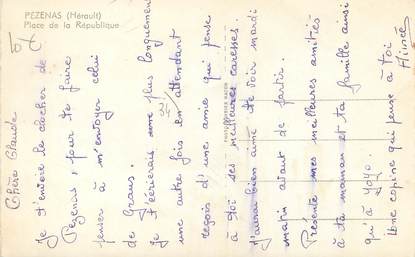 PEZENAS (Hérault)
Place de la République
Chère Claude
Je t'envoie le clocher de
Pézenas, pour te faire
penser à m'envoyer celui
de Graus.
Je t'écrirais une plus longuement
une autre fois en attendant
reçois d'une amie qui pense
à toi ses meilleures caresses
J'aurai bien aimé te voir mardi
matin avant de partir.
Présente mes meilleures amitiés
à ta maman et ta famille ainsi
qu'à yoyo.
Une copine qui pense à toi
Aimée
34